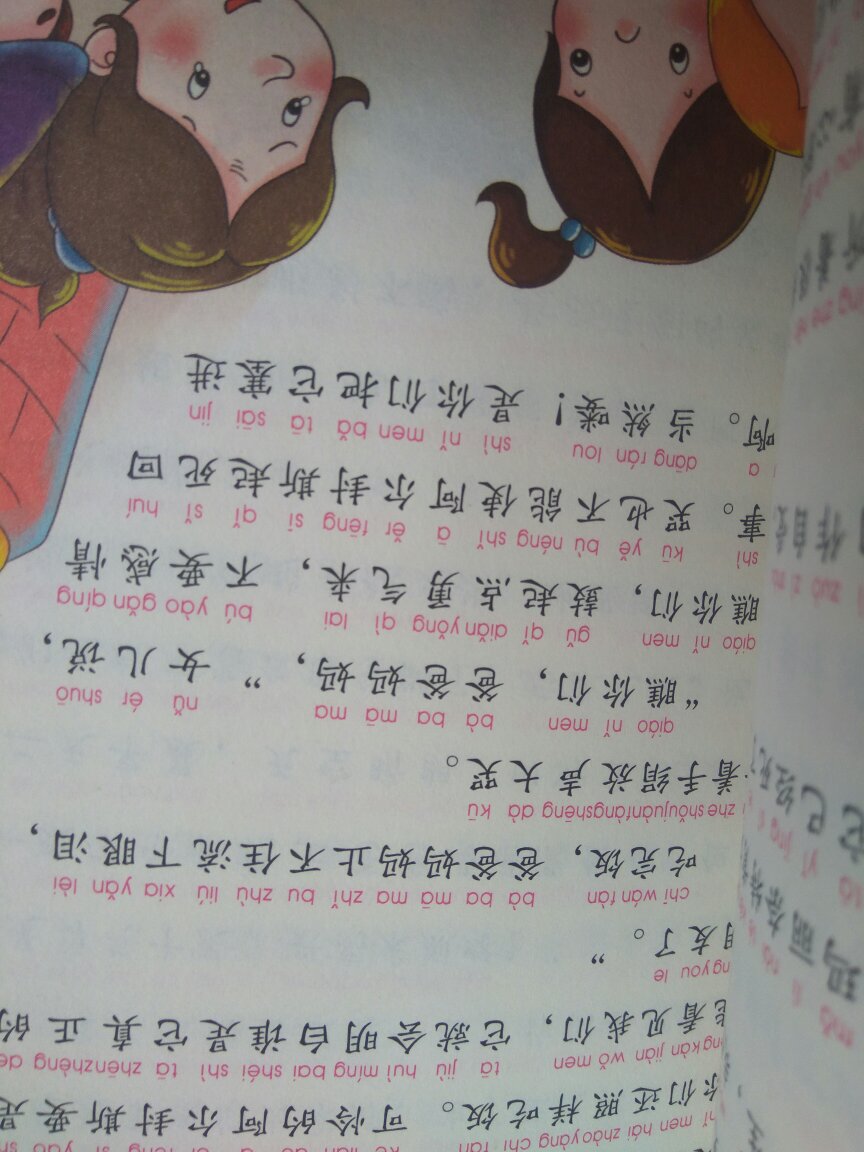 nǐ men hái zhàoyàng chī fàn kě lián de ā ěr fēng sī yào
你们还照样吃饭。可怜的阿尔封斯要是
kàn jiàn wǒ men tā jiù huì míng bai shéi shì tā zhēnzhèng de
看见我们，它就会明白谁是它真正的
you le
友了。”
chī wán fàn bà ba mā ma zhǐ bu zhù liú xia yǎn lèi
吃完饭，爸爸妈妈止不住流下眼泪，
zhe shǒujuànfàngshēng dà kū
着手绢放声大哭。
qiáo nǐ men bà ba mā ma nǚ ér shuō
“瞧你们，爸爸妈妈，”女儿说，
qiáo nǐ men gǔ qǐ diǎn yǒng qì lai bú yào gǎn qíng
瞧你们，鼓起点勇气来，不要感情
shì kū yě bù néng shǐ ā ěr fēng sī qǐ sǐ huí
事。哭也不能使阿尔封斯起死回
a dāng rán lou shì nǐ men bǎ tā sāi jìn
啊。当然喽！是你们把它塞进